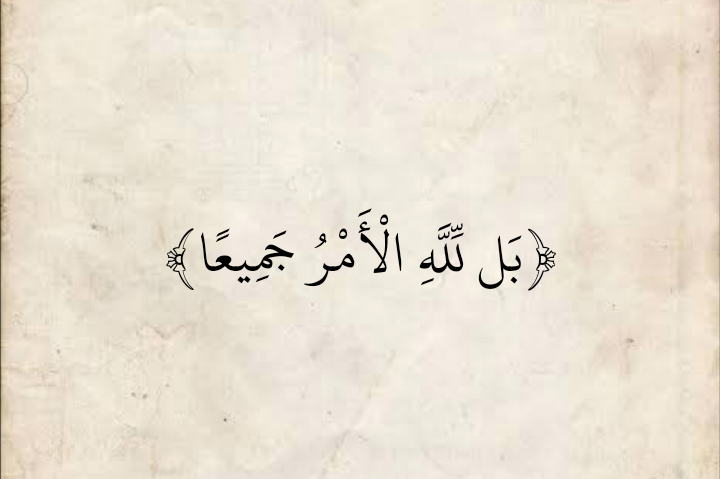 ﴿بَل لِّلَّهِ الْأَمْرُ جَمِيعًا﴾